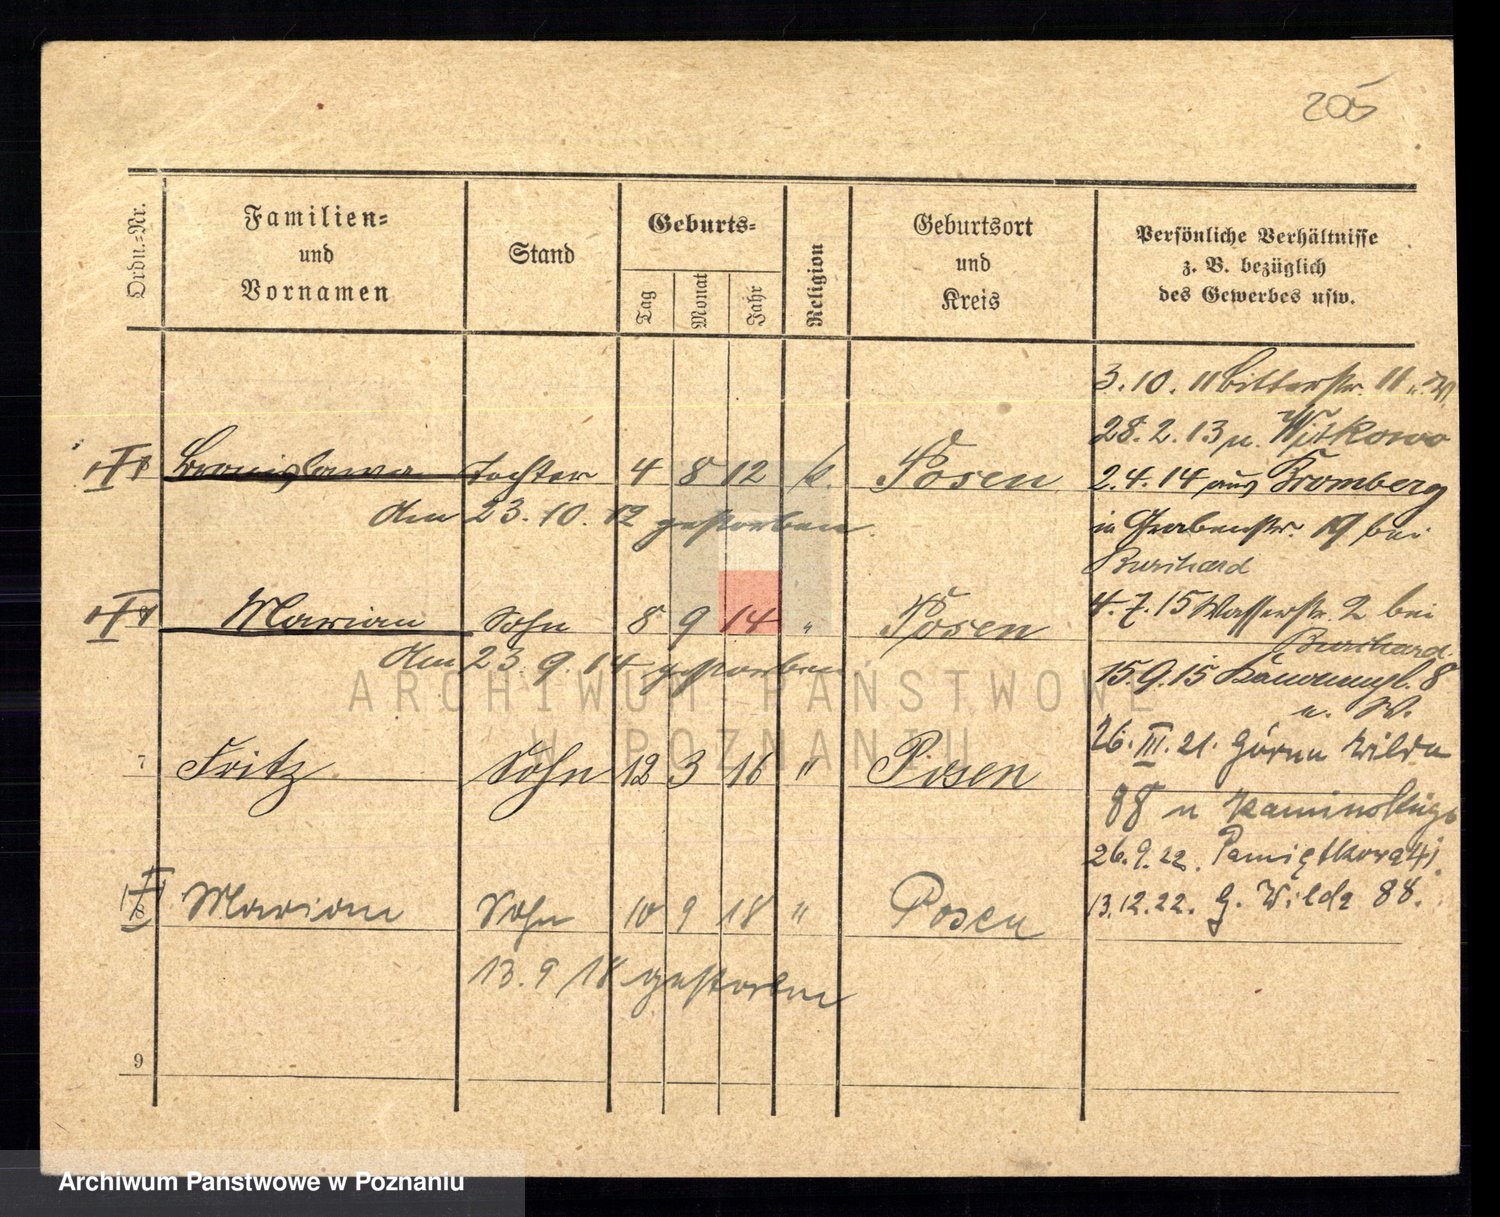 205
Ordn.-Nr.
Familien-
und
Vornamen
Stand
Geburts-
Tag
Monat
Jahr
Religion
Geburtsort
und
Kreis
Persönliche Verhältnisse
z. B. bezüglich
des Gewerbes usw.
3.10.11 Bitterstr. 11
28.2.13 n. Witkowo
Bronislawa Tochter 4 8 12 k. Posen
2.4.14 aus Bromberg
am 23.10.12 gestorben
in Grabenstr. 19 bei
Burchard
Marian Sohn 8 9 14 " Posen
4.7.15 Wasserstr. 2 bei
Burchard
am 23.9.14 gestorben
15.9.15 8
u. W.
7 Fritz Sohn 12 3 16 " Posen
26.III.21. Górna Wilda
88 u
26.9.22.
Marian Sohn 10 9 18 " Posen
13.12.22. G. Wilda 88.
13.9.18 gestorben
9
ARCHIWUM PAŃSTWOWE
W POZNANIU
Archiwum Państwowe w Poznaniu